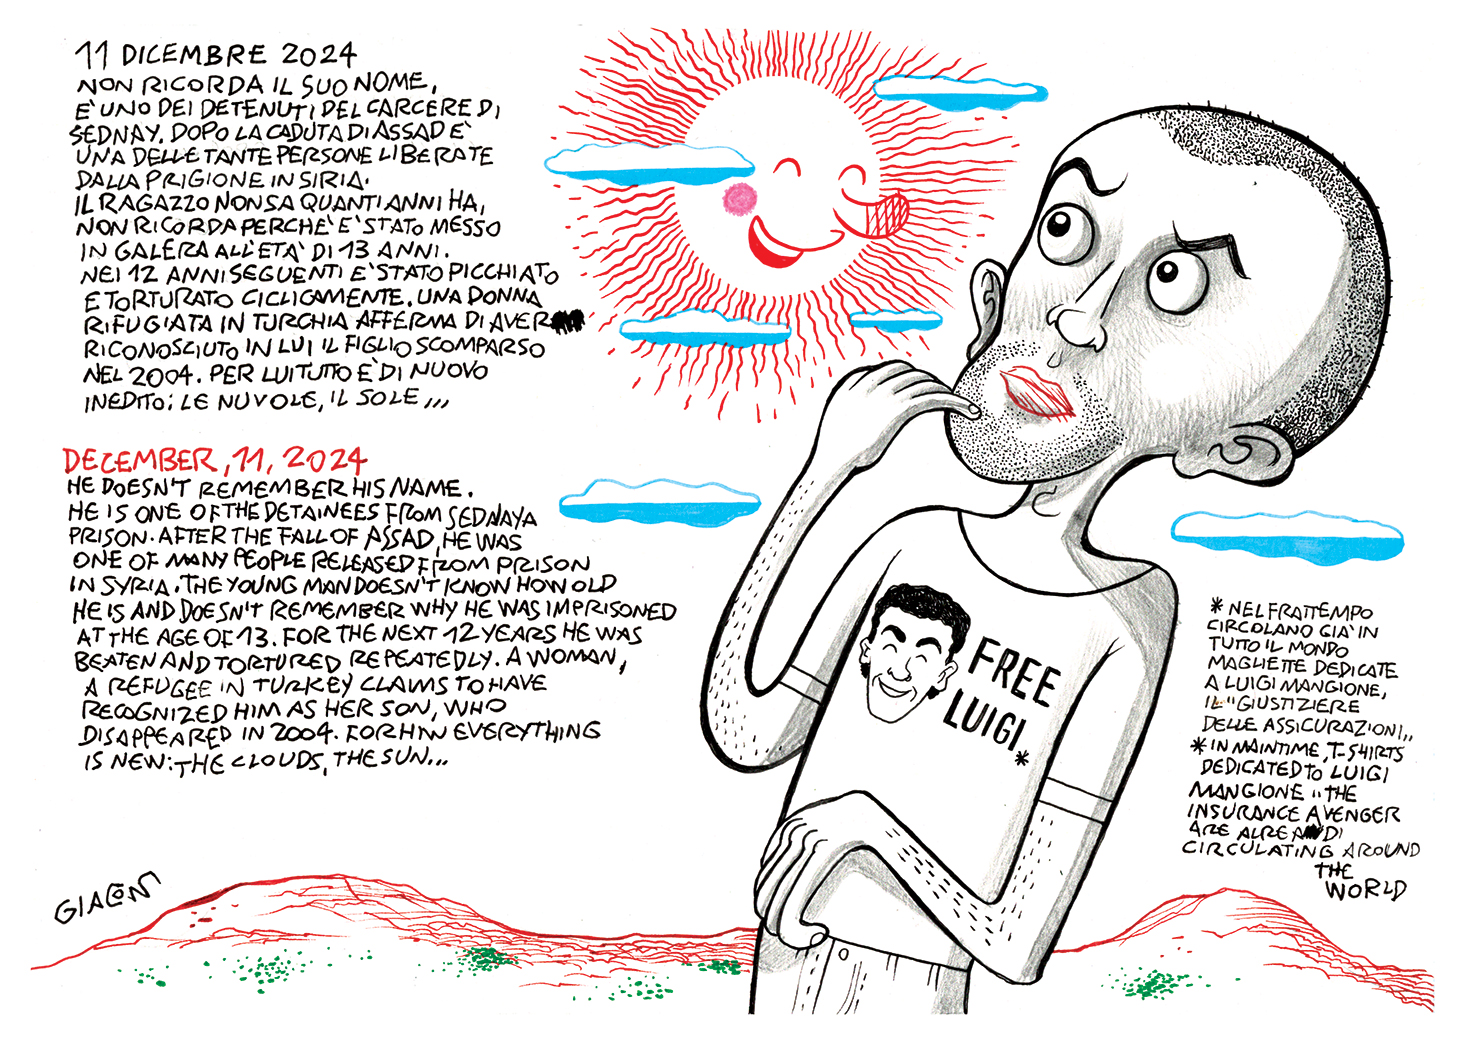 11 DICEMBRE 2024
NON RICORDA IL SUO NOME,
E' UNO DEI DETENUTI DEL CARCERE DI
SEDNAY. DOPO LA CADUTA DI ASSAD E'
UNA DELLE TANTE PERSONE LIBERATE
DALLA PRIGIONE IN SIRIA.
IL RAGAZZO NON SA QUANTI ANNI HA,
NON RICORDA PERCHE' E' STATO MESSO
IN GALERA ALL'ETA' DI 13 ANNI.
NEI 12 ANNI SEGUENTI E' STATO PICCHIATO
E TORTURATO CICLICAMENTE. UNA DONNA
RIFUGIATA IN TURCHIA AFFERMA DI AVER
RICONOSCIUTO IN LUI IL FIGLIO SCOMPARSO
NEL 2004. PER LUI TUTTO E' DI NUOVO
INEDITO: LE NUVOLE, IL SOLE,,,
DECEMBER, 11, 2024
HE DOESN'T REMEMBER HIS NAME.
HE IS ONE OF THE DETAINEES FROM SEDNAYA
PRISON. AFTER THE FALL OF ASSAD, HE WAS
ONE OF MANY PEOPLE RELEASED FROM PRISON
IN SYRIA. THE YOUNG MAN DOESN'T KNOW HOW OLD
HE IS AND DOESN'T REMEMBER WHY HE WAS IMPRISONED
AT THE AGE OF 13. FOR THE NEXT 12 YEARS HE WAS
BEATEN AND TORTURED REPEATEDLY. A WOMAN,
A REFUGEE IN TURKEY CLAIMS TO HAVE
RECOGNIZED HIM AS HER SON, WHO
DISAPPEARED IN 2004. FOR HIM EVERYTHING
IS NEW: THE CLOUDS, THE SUN...
FREE
LUIGI *
* NEL FRATTEMPO
CIRCOLANO GIA' IN
TUTTO IL MONDO
MAGLIETTE DEDICATE
A LUIGI MANGIONE,
IL "GIUSTIZIERE
DELLE ASSICURAZIONI,,
* IN MAINTIME, T-SHIRTS
DEDICATED TO LUIGI
MANGIONE "THE
INSURANCE AVENGER
ARE ALREADI
CIRCULATING AROUND
THE
WORLD
GIACON